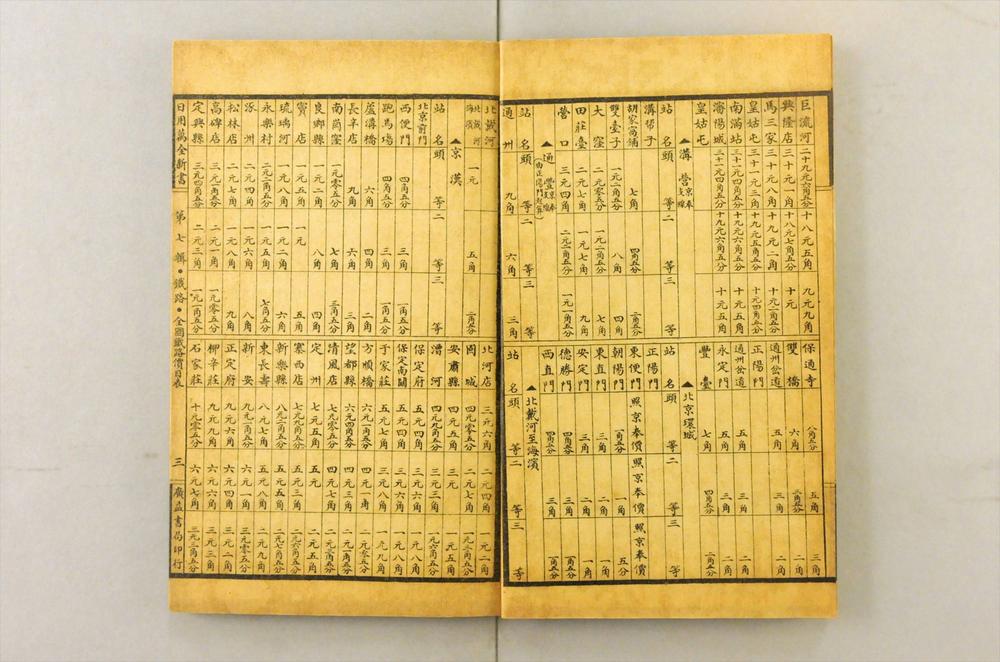 巨流河 二十九元六角五分 十八元五角 九元九角
興隆店 三十元一角 十八元七角五分 十元
馬三家 三十元 十九元二角
皇姑屯 三十一元三角 十九元五角五分 十元四角五分
南滿站 三十一元四角五分 十九元六角五分 十元五角
瀋陽城 三十一元四角五分 十九元六角五分 十元五角
皇姑屯
▲溝營京奉支線
站名 頭等 二等 三等
溝幫子
胡家窩鋪 七角 四角五分 二角五分
雙臺子 一元二角五分 八角 四角
大窪 二元零五分 一元二角五分 七角
田莊臺 二元七角 一元七角 九角
營口 三元四角 二元一角五分 一元一角五分
▲通豐京奉支線(由正陽門起算)
站名 頭等 二等 三等
通州 九角 六角 三角
保通寺 八角五分 五角 三角
雙橋 六角 三角五分 二角
通州岔道 五角 三角 二角
正陽門
通州岔道 五角 三角 二角
永定門 五角 三角 二角
豐臺 七角 四角五分 二角五分
▲北京環城
站名 頭等 二等 三等
正陽門
東便門 照京奉價 照京奉價 照京奉價
朝陽門 一角五分 一角 五分
東直門 三角 二角 一角
安定門 三角 二角 一角
德勝門 四角五分 三角 一角五分
西直門 四角五分 三角 一角五分
▲北戴河至海濱
站名 頭等 二等 三等
北戴河
北戴河海濱 一元 五角 二角五分
▲京漢
站名 頭等 二等 三等
北京前門
西便門 四角五分 三角 一角五分
跑馬場 四角五分 三角 一角五分
蘆溝橋 六角 四角 二角
長辛店 九角 六角 三角
南崗窪 一元零五分 七角 三角五分
良鄉縣 一元二角 八角 四角
竇店 一元五角 一元 五角
琉璃河 一元八角 一元二角 六角
永樂村 二元二角五分 一元五角 七角五分
涿州 二元四角 一元六角 八角
松林店 二元七角 一元八角 九角
高碑店 三元一角五分 二元一角 一元零五分
定興縣 三元四角五分 二元三角 一元一角五分
北河店 三元六角 二元四角 一元二角
固城 四元零五分 二元七角 一元三角五分
安肅縣 四元五角 三元 一元五角
漕河 四元九角五分 三元三角 一元六角五分
保定府 五元四角 三元六角 一元八角
保定南關 五元四角 三元六角 一元八角
于家莊 五元七角 三元八角 一元九角
方順橋 六元一角五分 四元一角 二元零五分
望都縣 六元四角五分 四元三角 二元一角五分
清風店 七元零五分 四元七角 二元三角五分
定州 七元五角 五元 二元五角
寨西店 七元九角五分 五元三角 二元六角五分
新樂縣 八元二角五分 五元五角 二元七角五分
東長壽 八元七角 五元八角 二元九角
新安 九元一角五分 六元一角 三元零五分
正定府 九元六角 六元四角 三元二角
柳辛莊 九元九角 六元六角 三元三角
石家莊 十元零五分 六元七角 三元三角五分
日用萬全新書 第七輯●鐵路●全國鐵路價目表 三 廣益書局印行